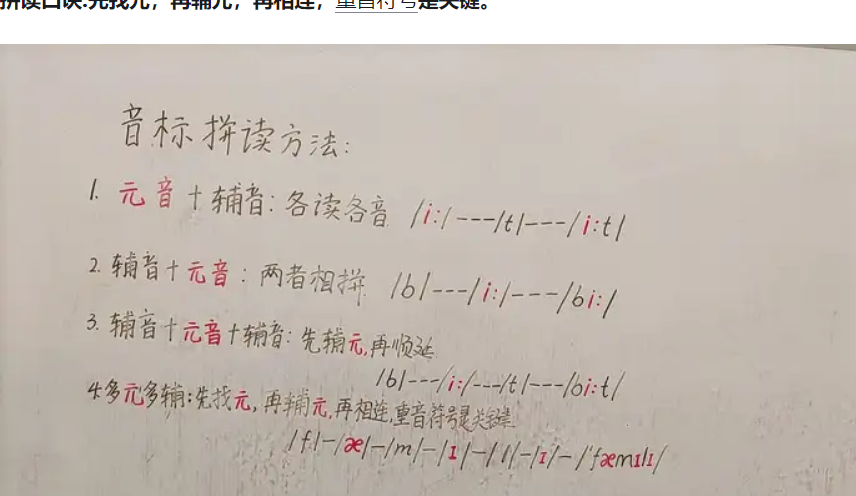 拼读口诀:先找元，再辅元，再相连，重音符号是关键。
音标拼读方法:
1. 元音+辅音:各读各音 /i:/---/t/---/i:t/
2. 辅音+元音:两者相拼 /b/---/i:/---/bi:/
3. 辅音+元音+辅音:先辅元,再顺延
/b/---/i:/---/t/---/bi:t/
4.多元多辅:先找元,再辅元,再相连,重音符号是关键
/f/-/æ/-/m/-/ɪ/-/l/-/ɪ/-/ˈfæmɪlɪ/